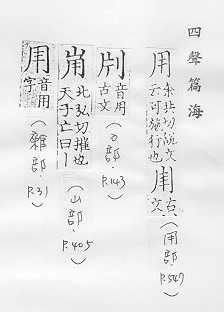 四聲篇海
用
余共切說文
云可施行也
古文
(用部. P.547)
音用
古文
部. P.143)
北弘切摧也
天子亡曰丨
(山部. P.405)
音用
字
(雜部. P.31)